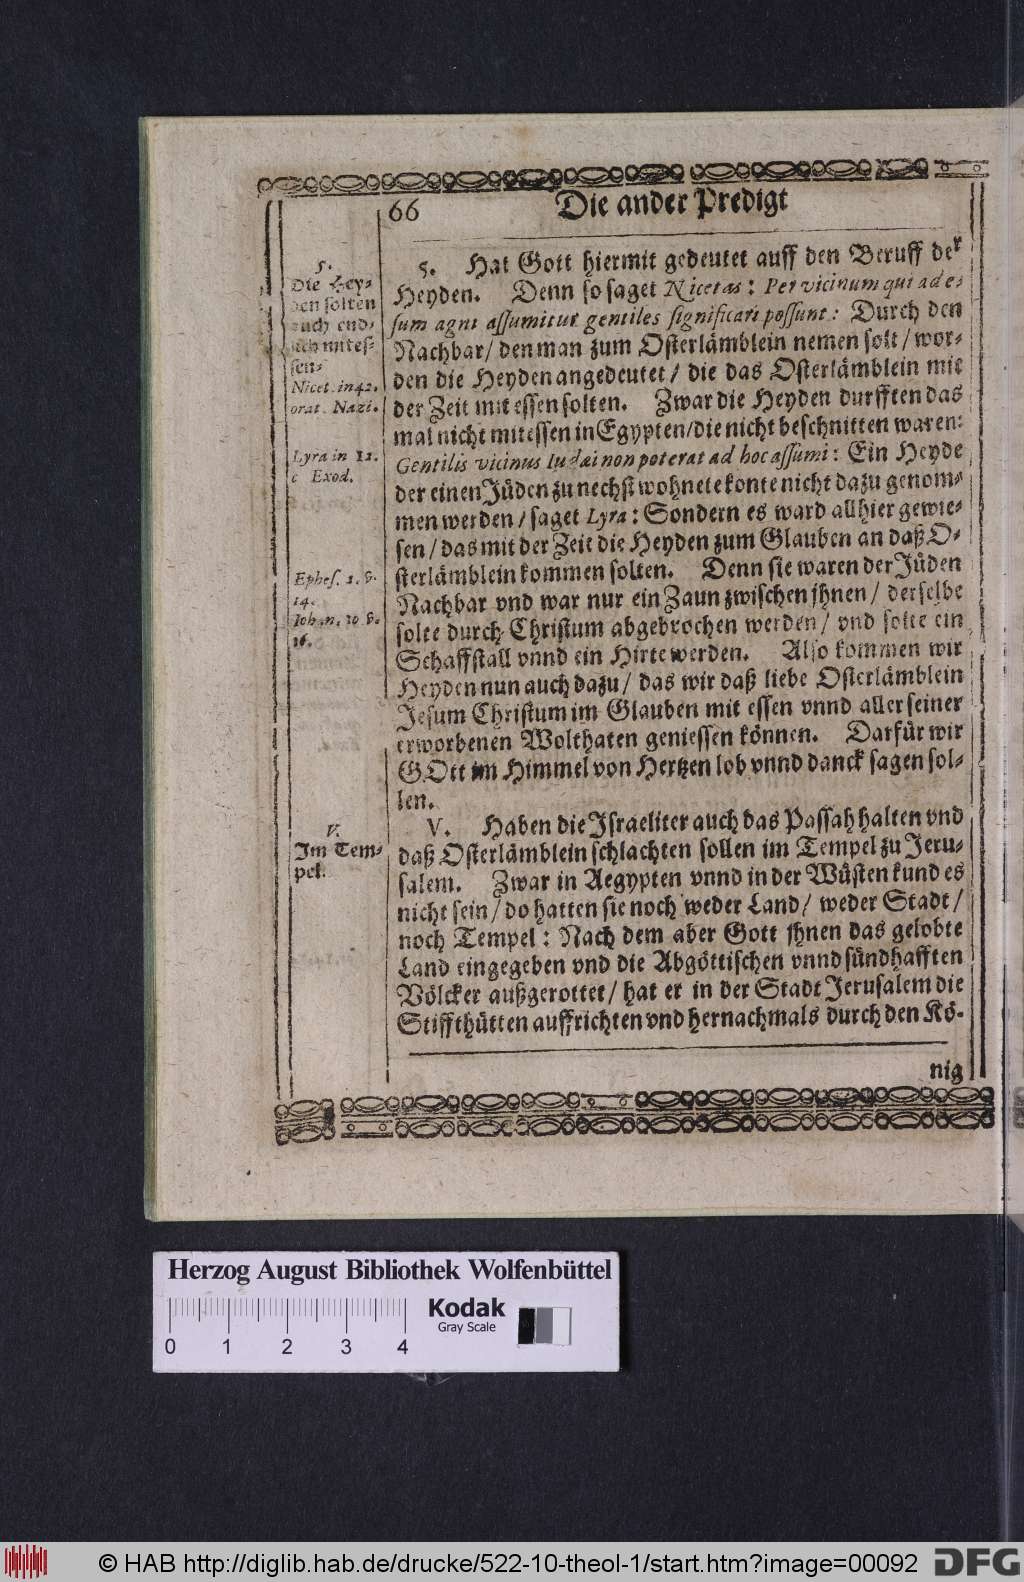 66
Die ander Predigt
5. Hat Gott hiermit gedeutet auff den Beruff der
Heyden. Denn so saget Nicetas: Per vicinum qui ad e-
sum agni assumitur gentiles significari possunt: Durch den
Nachbar/ den man zum Osterlämblein nemen solt/ wor-
den die Heyden angedeutet/ die das Osterlämblein mit
der Zeit mit essen solten. Zwar die Heyden durfften das
mal nicht mitessen in Egypten/ die nicht beschnitten waren:
Gentilis vicinus Iudæi non poterat ad hoc assumi: Ein Heyde
der einen Jüden zu nechst wohnete konte nicht dazu genom-
men werden/ saget Lyra: Sondern es ward allhier gewie-
sen/ das mit der Zeit die Heyden zum Glauben an daß O-
sterlämblein kommen solten. Denn sie waren der Jüden
Nachbar vnd war nur ein Zaun zwischen jhnen/ derselbe
solte durch Christum abgebrochen werden/ vnd solte ein
Schaffstall vnnd ein Hirte werden. Also kommen wir
Heyden nun auch dazu/ das wir daß liebe Osterlämblein
Jesum Christum im Glauben mit essen vnnd aller seiner
erworbenen Wolthaten geniessen können. Darfür wir
GOtt im Himmel von Hertzen lob vnnd danck sagen sol-
len.
V. Haben die Israeliter auch das Passah halten vnd
daß Osterlämblein schlachten sollen im Tempel zu Jeru-
salem. Zwar in Aegypten vnnd in der Wüsten kund es
nicht sein/ do hatten sie noch weder Land/ weder Stadt/
noch Tempel: Nach dem aber Gott jhnen das gelobte
Land eingegeben vnd die Abgöttischen vnnd sündhafften
Völcker außgerottet/ hat er in der Stadt Jerusalem die
Stiffthütten auffrichten vnd hernachmals durch den Kö-
nig
5.
Die Hey-
den solten
auch end-
lich mites-
sen.
Nicet. in 42.
orat. Nazi.
Lyra in 12.
c Exod.
Ephes. 2. §.
14.
Iohan. 10 §.
16.
V.
Im Tem-
pel.
Herzog August Bibliothek Wolfenbüttel
Kodak
Gray Scale
0 1 2 3 4
© HAB http://diglib.hab.de/drucke/522-10-theol-1/start.htm?image=00092
DFG